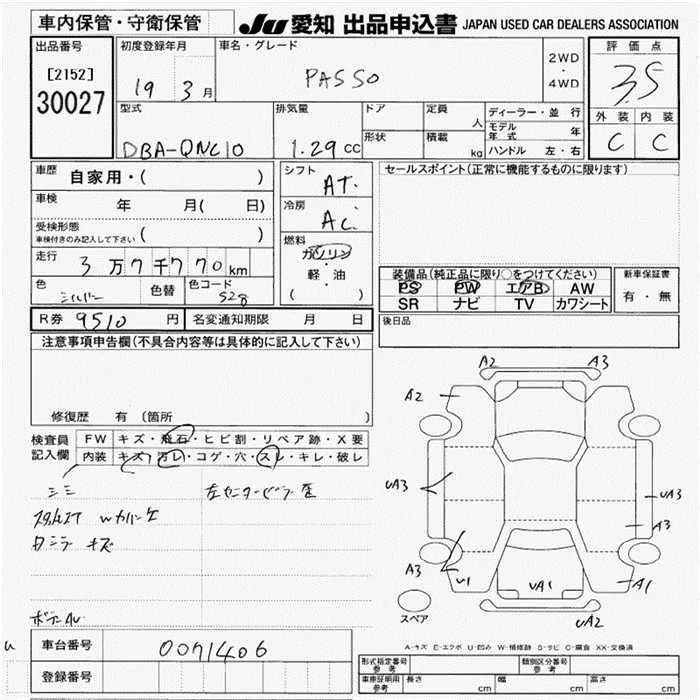 車内保管・守衛保管
JU 愛知 出品申込書 JAPAN USED CAR DEALERS ASSOCIATION
出品番号
[2152]
30027
初度登録年月
19 3月
車名・グレード
PASSO
2WD
・
4WD
評価点
3.5
外装 内装
C C
型式
DBA-QNC10
排気量
1.29 cc
ドア
形状
定員 人
積載 kg
ディーラー・並行
モデル年式 年
ハンドル 左・右
車歴
自家用・( )
車検
年 月( 日)
受検形態
車検付きのみ記入して下さい ( )
走行
3万7千770km
色
シルバー
色替
色コード
S28
シフト
AT
冷房
AC
燃料
ガソリン
・
軽・油
( )
セールスポイント(正常に機能するものに限ります)
装備品(純正品に限り○をつけてください)
PS PW エアB AW
SR ナビ TV カワシート
新車保証書
有・無
R券 9510 円
名変通知期限 月 日
後日品
注意事項申告欄(不具合内容等は具体的に記入して下さい)
修復歴 有 〔箇所 〕
検査員
記入欄
FW キズ・飛石・ヒビ割・リペア跡・X要
内装 キズ・汚レ・コゲ・穴・スレ・キレ・破レ
シミ
キズ
A2 A3
A2
UA3
UA3
A3
A3
U1
UA1
A1
UA2
スペア
A-キズ E-エクボ U-凹み W-補修跡 S-サビ C-腐食 XX-交換済
車台番号
0071406
登録番号
形式指定番号
参考
類別区分番号
参考
車庫証明用
参考
長さ cm
幅 cm
高さ cm